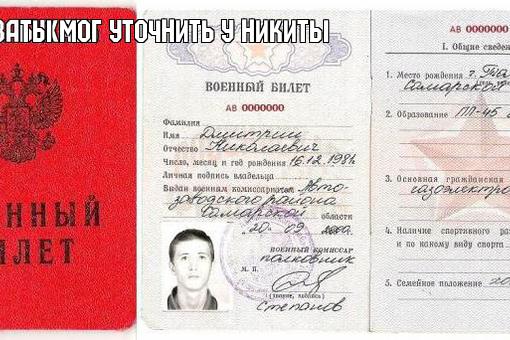 ВАТЫ МОГ УТОЧНИТЬ У НИКИТЫ
ЕННЫЙ
ИЛЕТ
ВОЕННЫЙ БИЛЕТ
АВ 0000000
Фамилия
Имя Дмитрий
Отчество Николаевич
Число, месяц и год рождения 16.12.1981
Личная подпись владельца
Выдан военным комиссариатом Авто-
заводского района
Самарской области
20 09
ВОЕННЫЙ КОМИССАР
полковник
М. П.
(звание, подпись)
Степанов
АВ 0000000
I. Общие сведе
1. Место рождения г.
Самарской
2. Образование ПЛ-45
3. Основная гражданская
газоэлектро
4. Наличие спортивного раз
и по какому виду спорта
5. Семейное положение